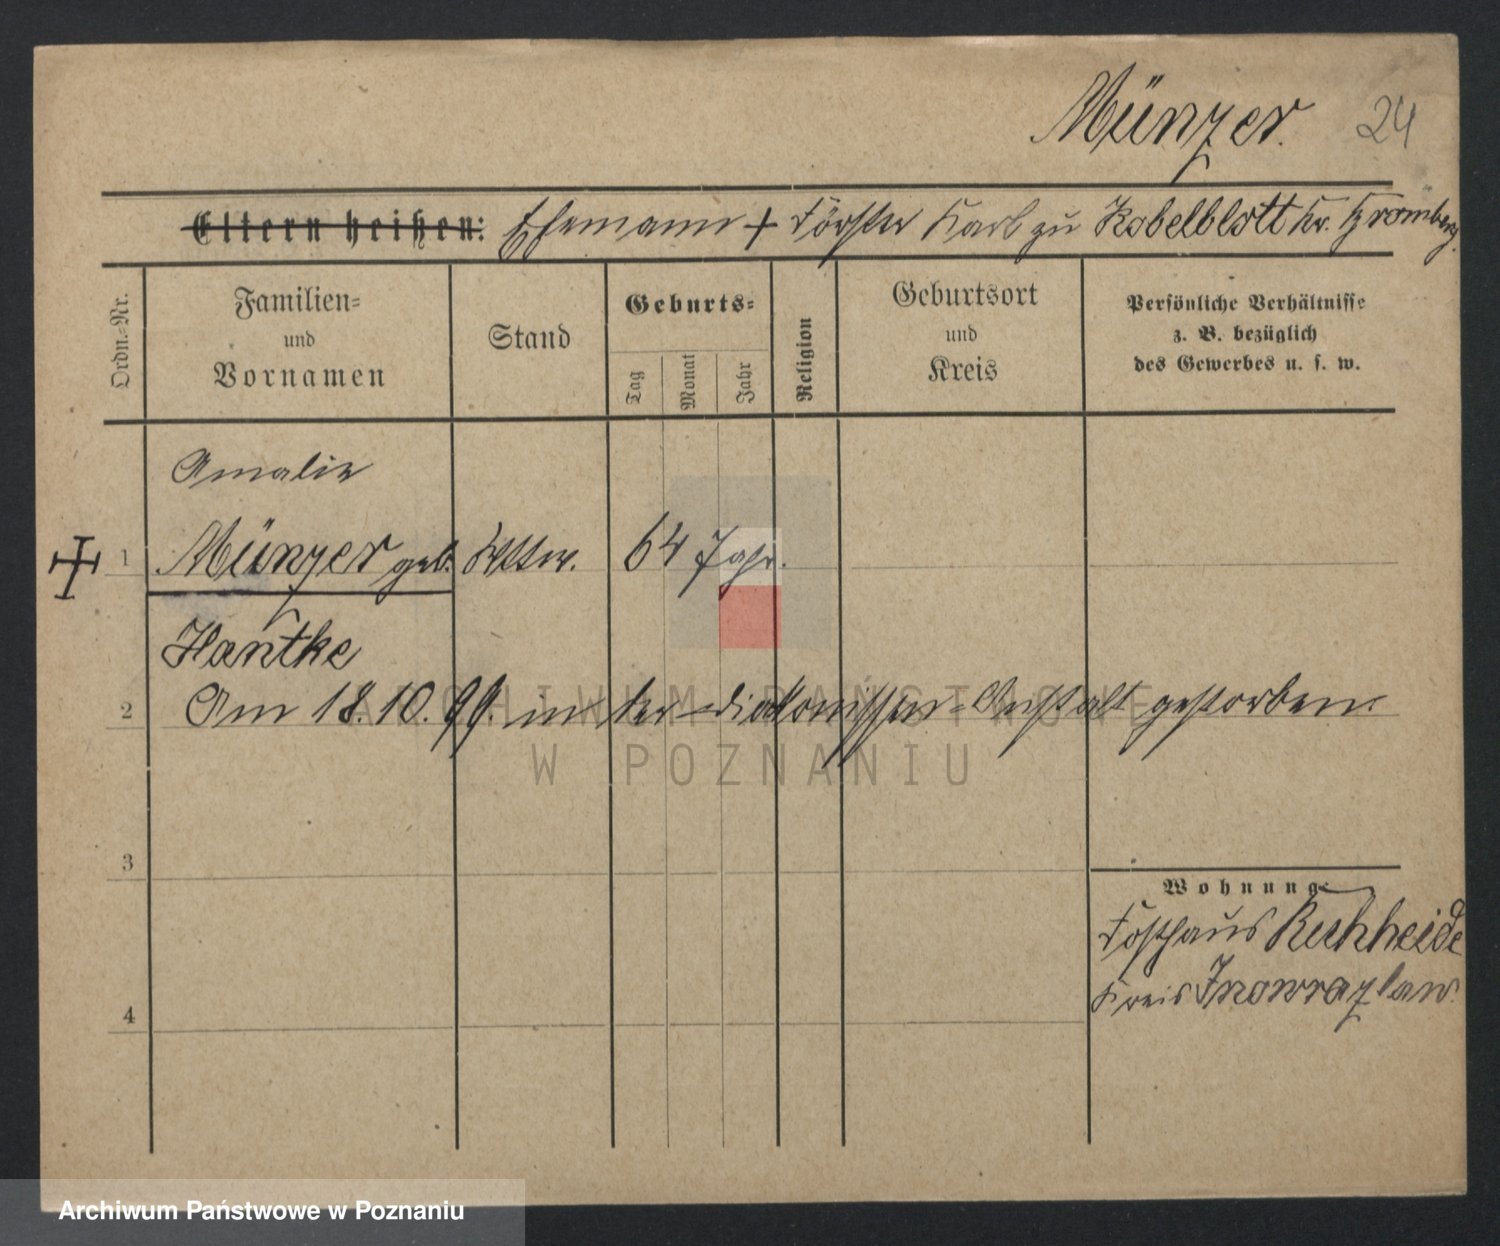 Münzer. 24
Eltern heißen: Ehemann + Förster Karl zu Kobelblott Kr. Bromberg.
Ordn.-Nr.
Familien-
und
Vornamen
Stand
Geburts-
Tag
Monat
Jahr
Religion
Geburtsort
und
Kreis
Persönliche Verhältnisse
z. B. bezüglich
des Gewerbes u. s. w.
Amalie
1 Münzer geb. Wttw. 64 Jahr.
Hantke
2 Am 18.10.99. in der Diakonissen-Anstalt gestorben.
ARCHIWUM PAŃSTWOWE
W POZNANIU
3
Wohnung:
Forsthaus
Kreis Inowrazlaw.
4
Archiwum Państwowe w Poznaniu